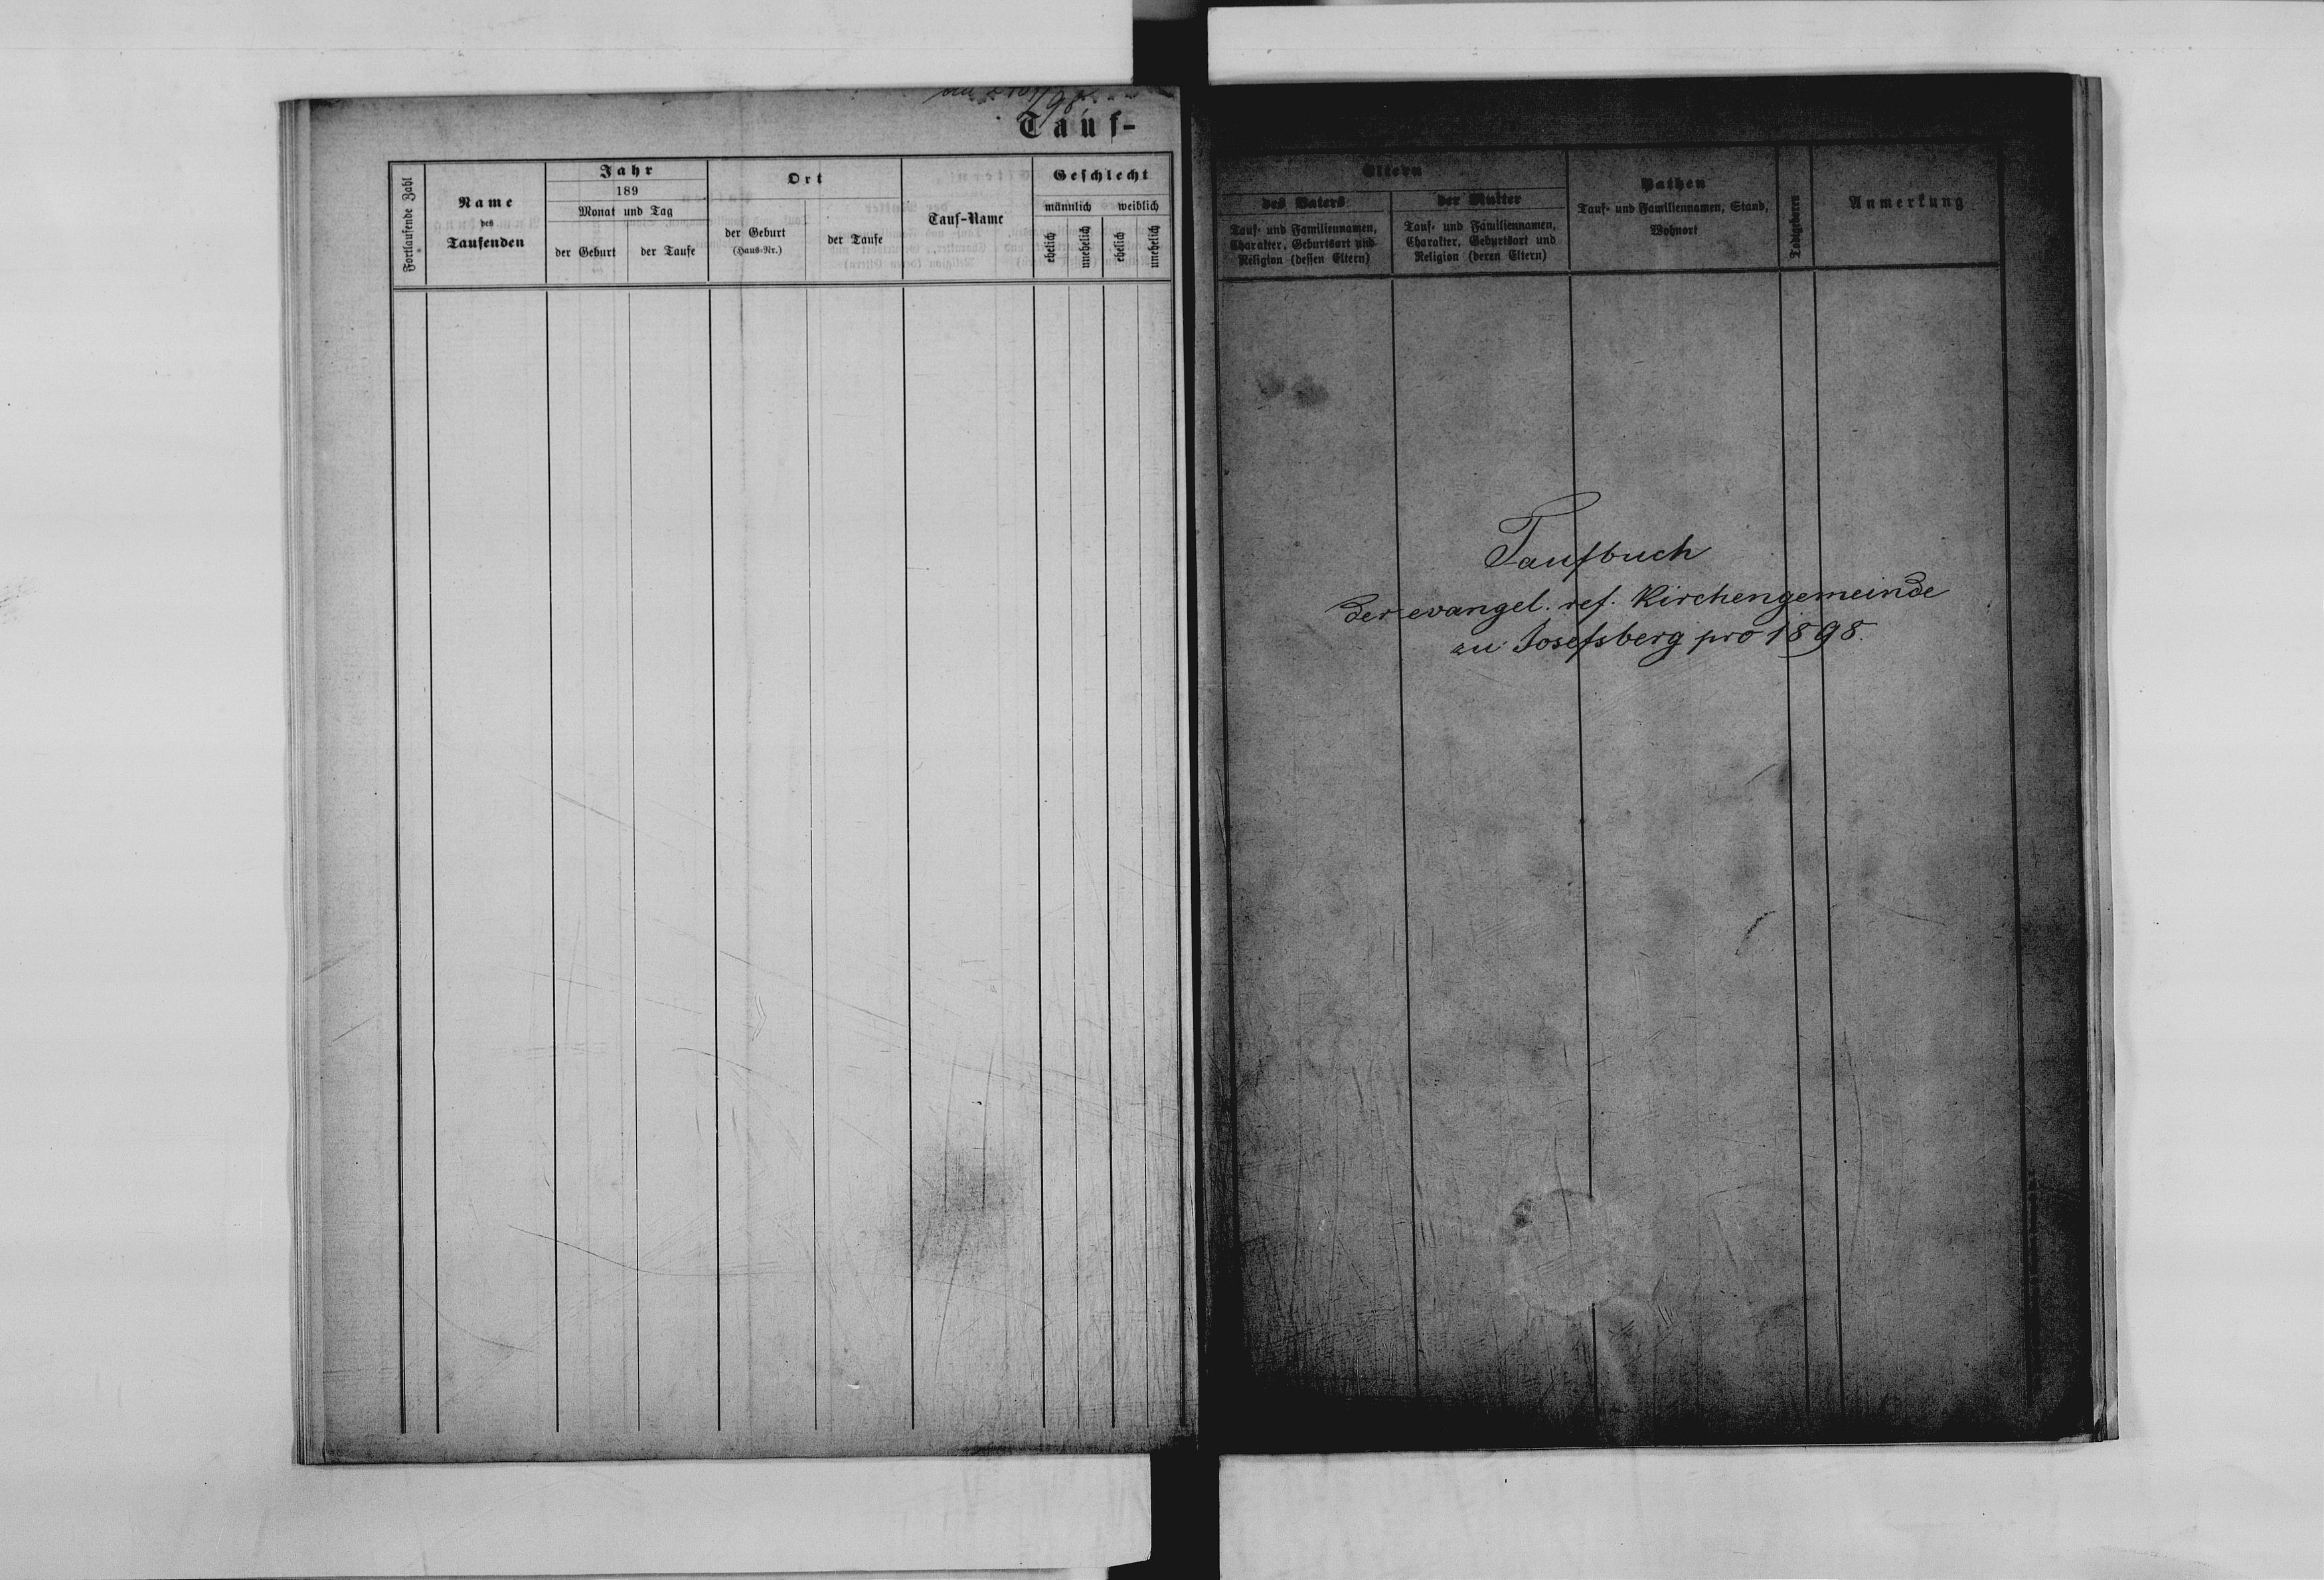 Tauf-
Fortlaufende Zahl
Name
des
Taufenden
Jahr
189
Monat und Tag
der Geburt
der Taufe
Ort
der Geburt
(Haus-Nr.)
der Taufe
Tauf-Name
Geschlecht
männlich
weiblich
ehelich
unehelich
ehelich
unehelich
Eltern
des Vaters
Tauf- und Familiennamen,
Charakter, Geburtsort und
Religion (dessen Eltern)
der Mutter
Tauf- und Familiennamen,
Charakter, Geburtsort und
Religion (deren Eltern)
Pathen
Tauf- und Familiennamen, Stand,
Wohnort
Todtgeboren
Anmerkung
Taufbuch
der evangel. ref. Kirchengemeinde
zu Josefsberg pro 1898.